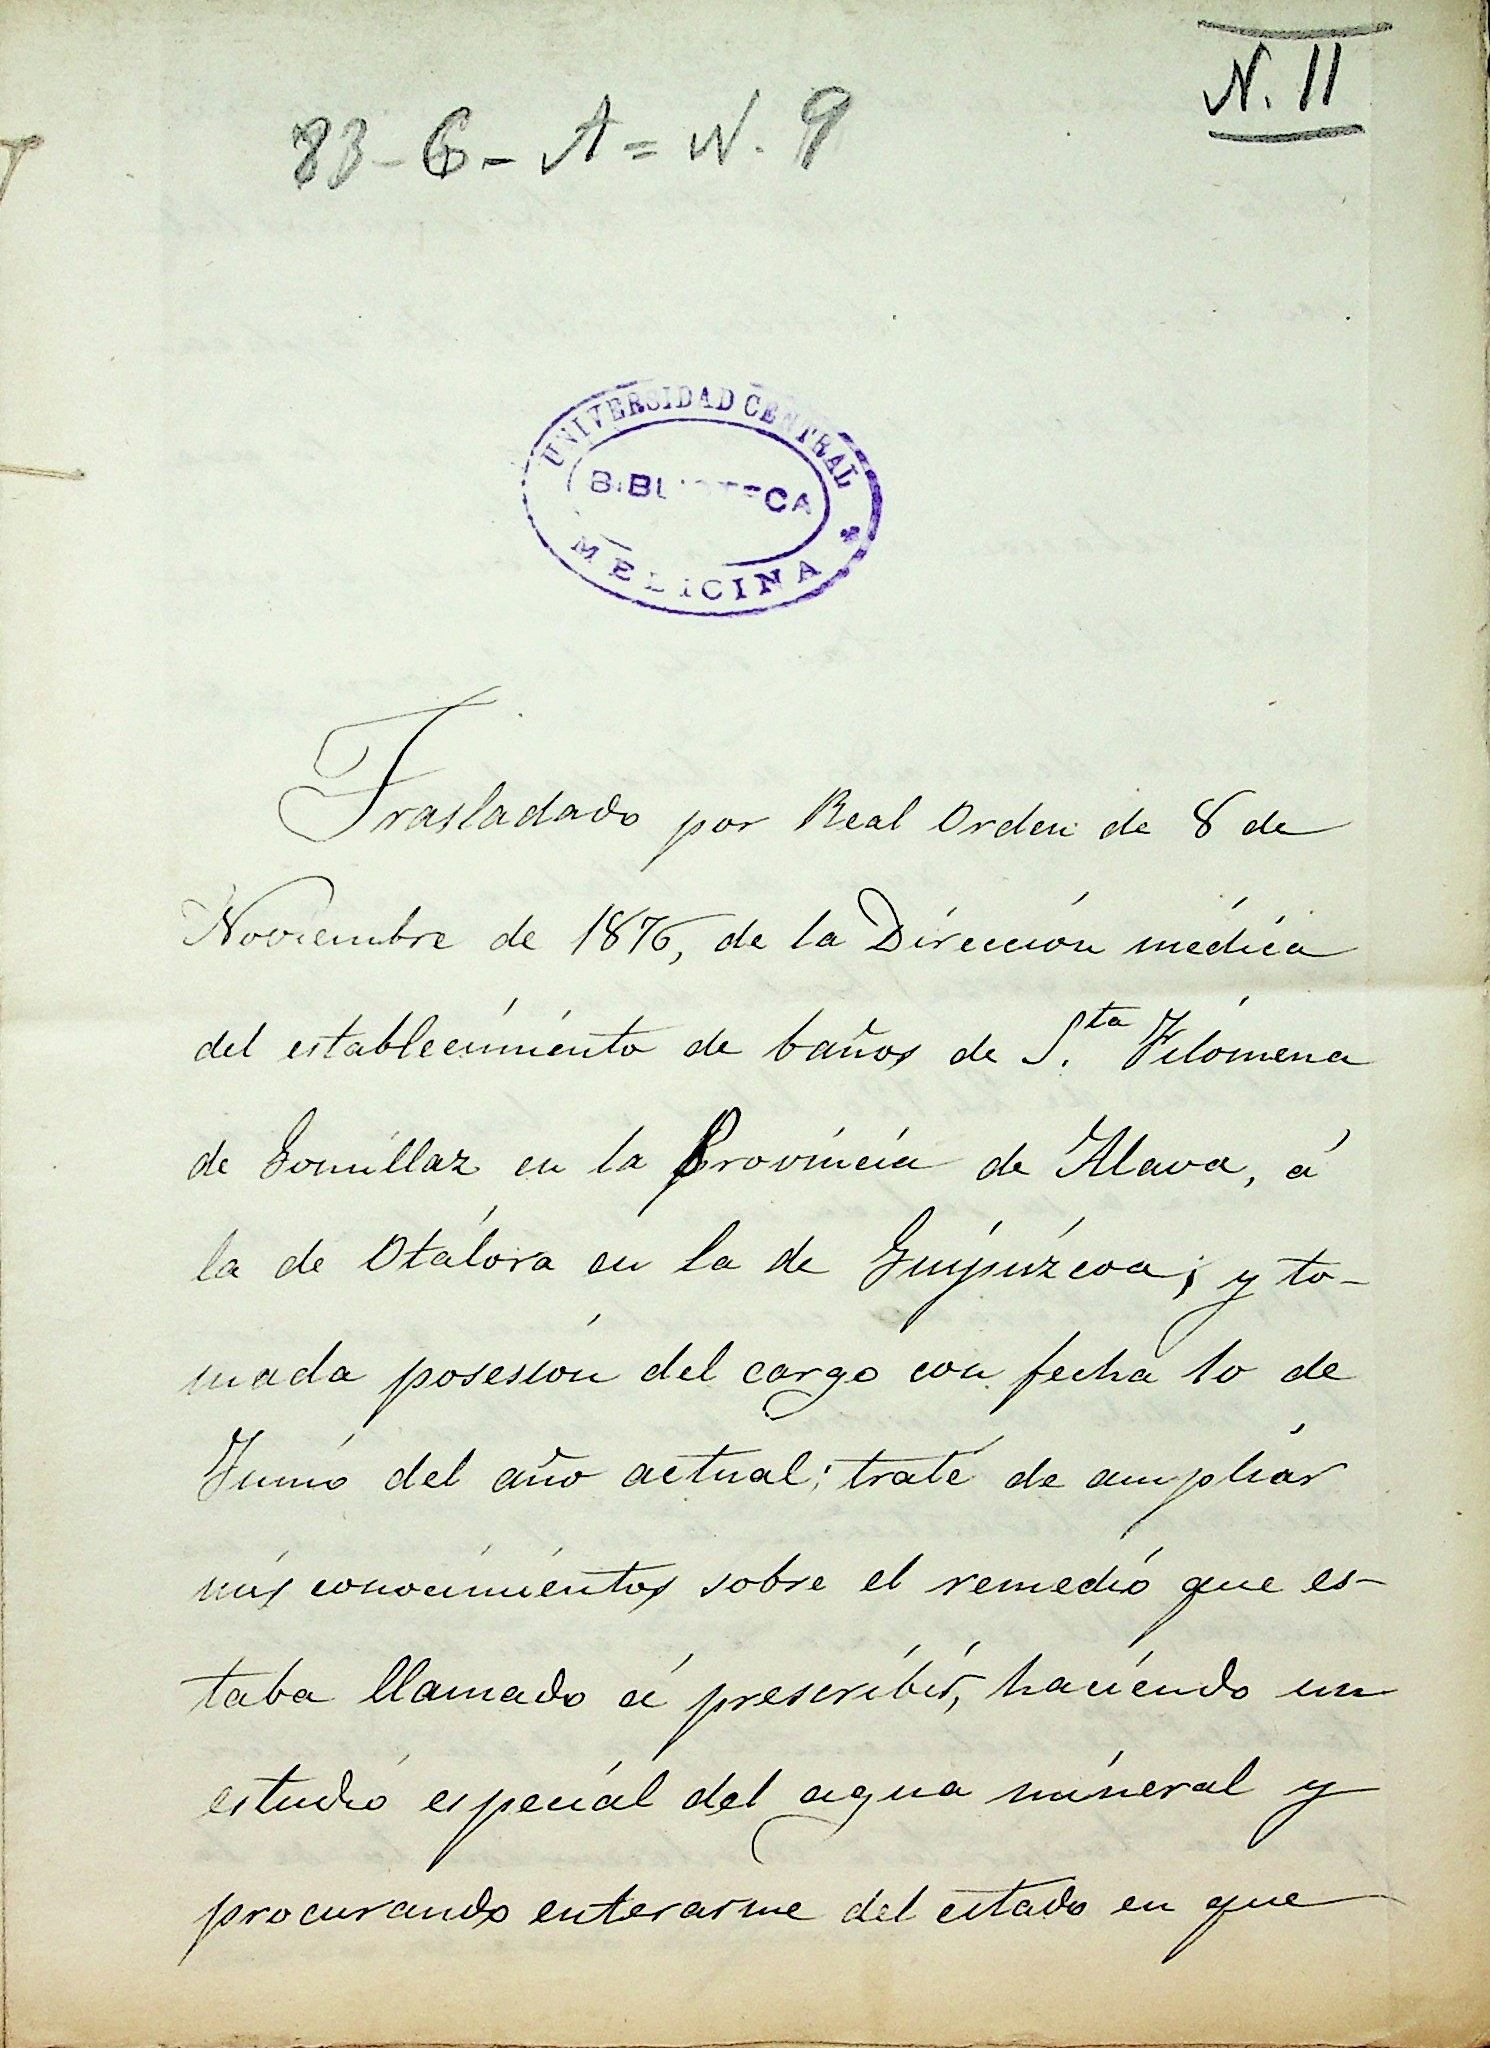 N. 11
83-6-A=N. 9
UNIVERSIDAD CENTRAL
BIBLIOTECA
MEDICINA
Trasladado por Real Orden de 8 de
Noviembre de 1876, de la Dirección médica
del establecimiento de baños de S.ta Filomena
de Gomillaz en la Provincia de Alava, á
la de Otálora en la de Guipúzcoa; y to-
mada posesión del cargo con fecha 10 de
Junio del año actual; traté de ampliar
mis conocimientos sobre el remedio que es-
taba llamado á prescribir, haciendo un
estudio especial del agua mineral y
procurando enterarme del estado en que